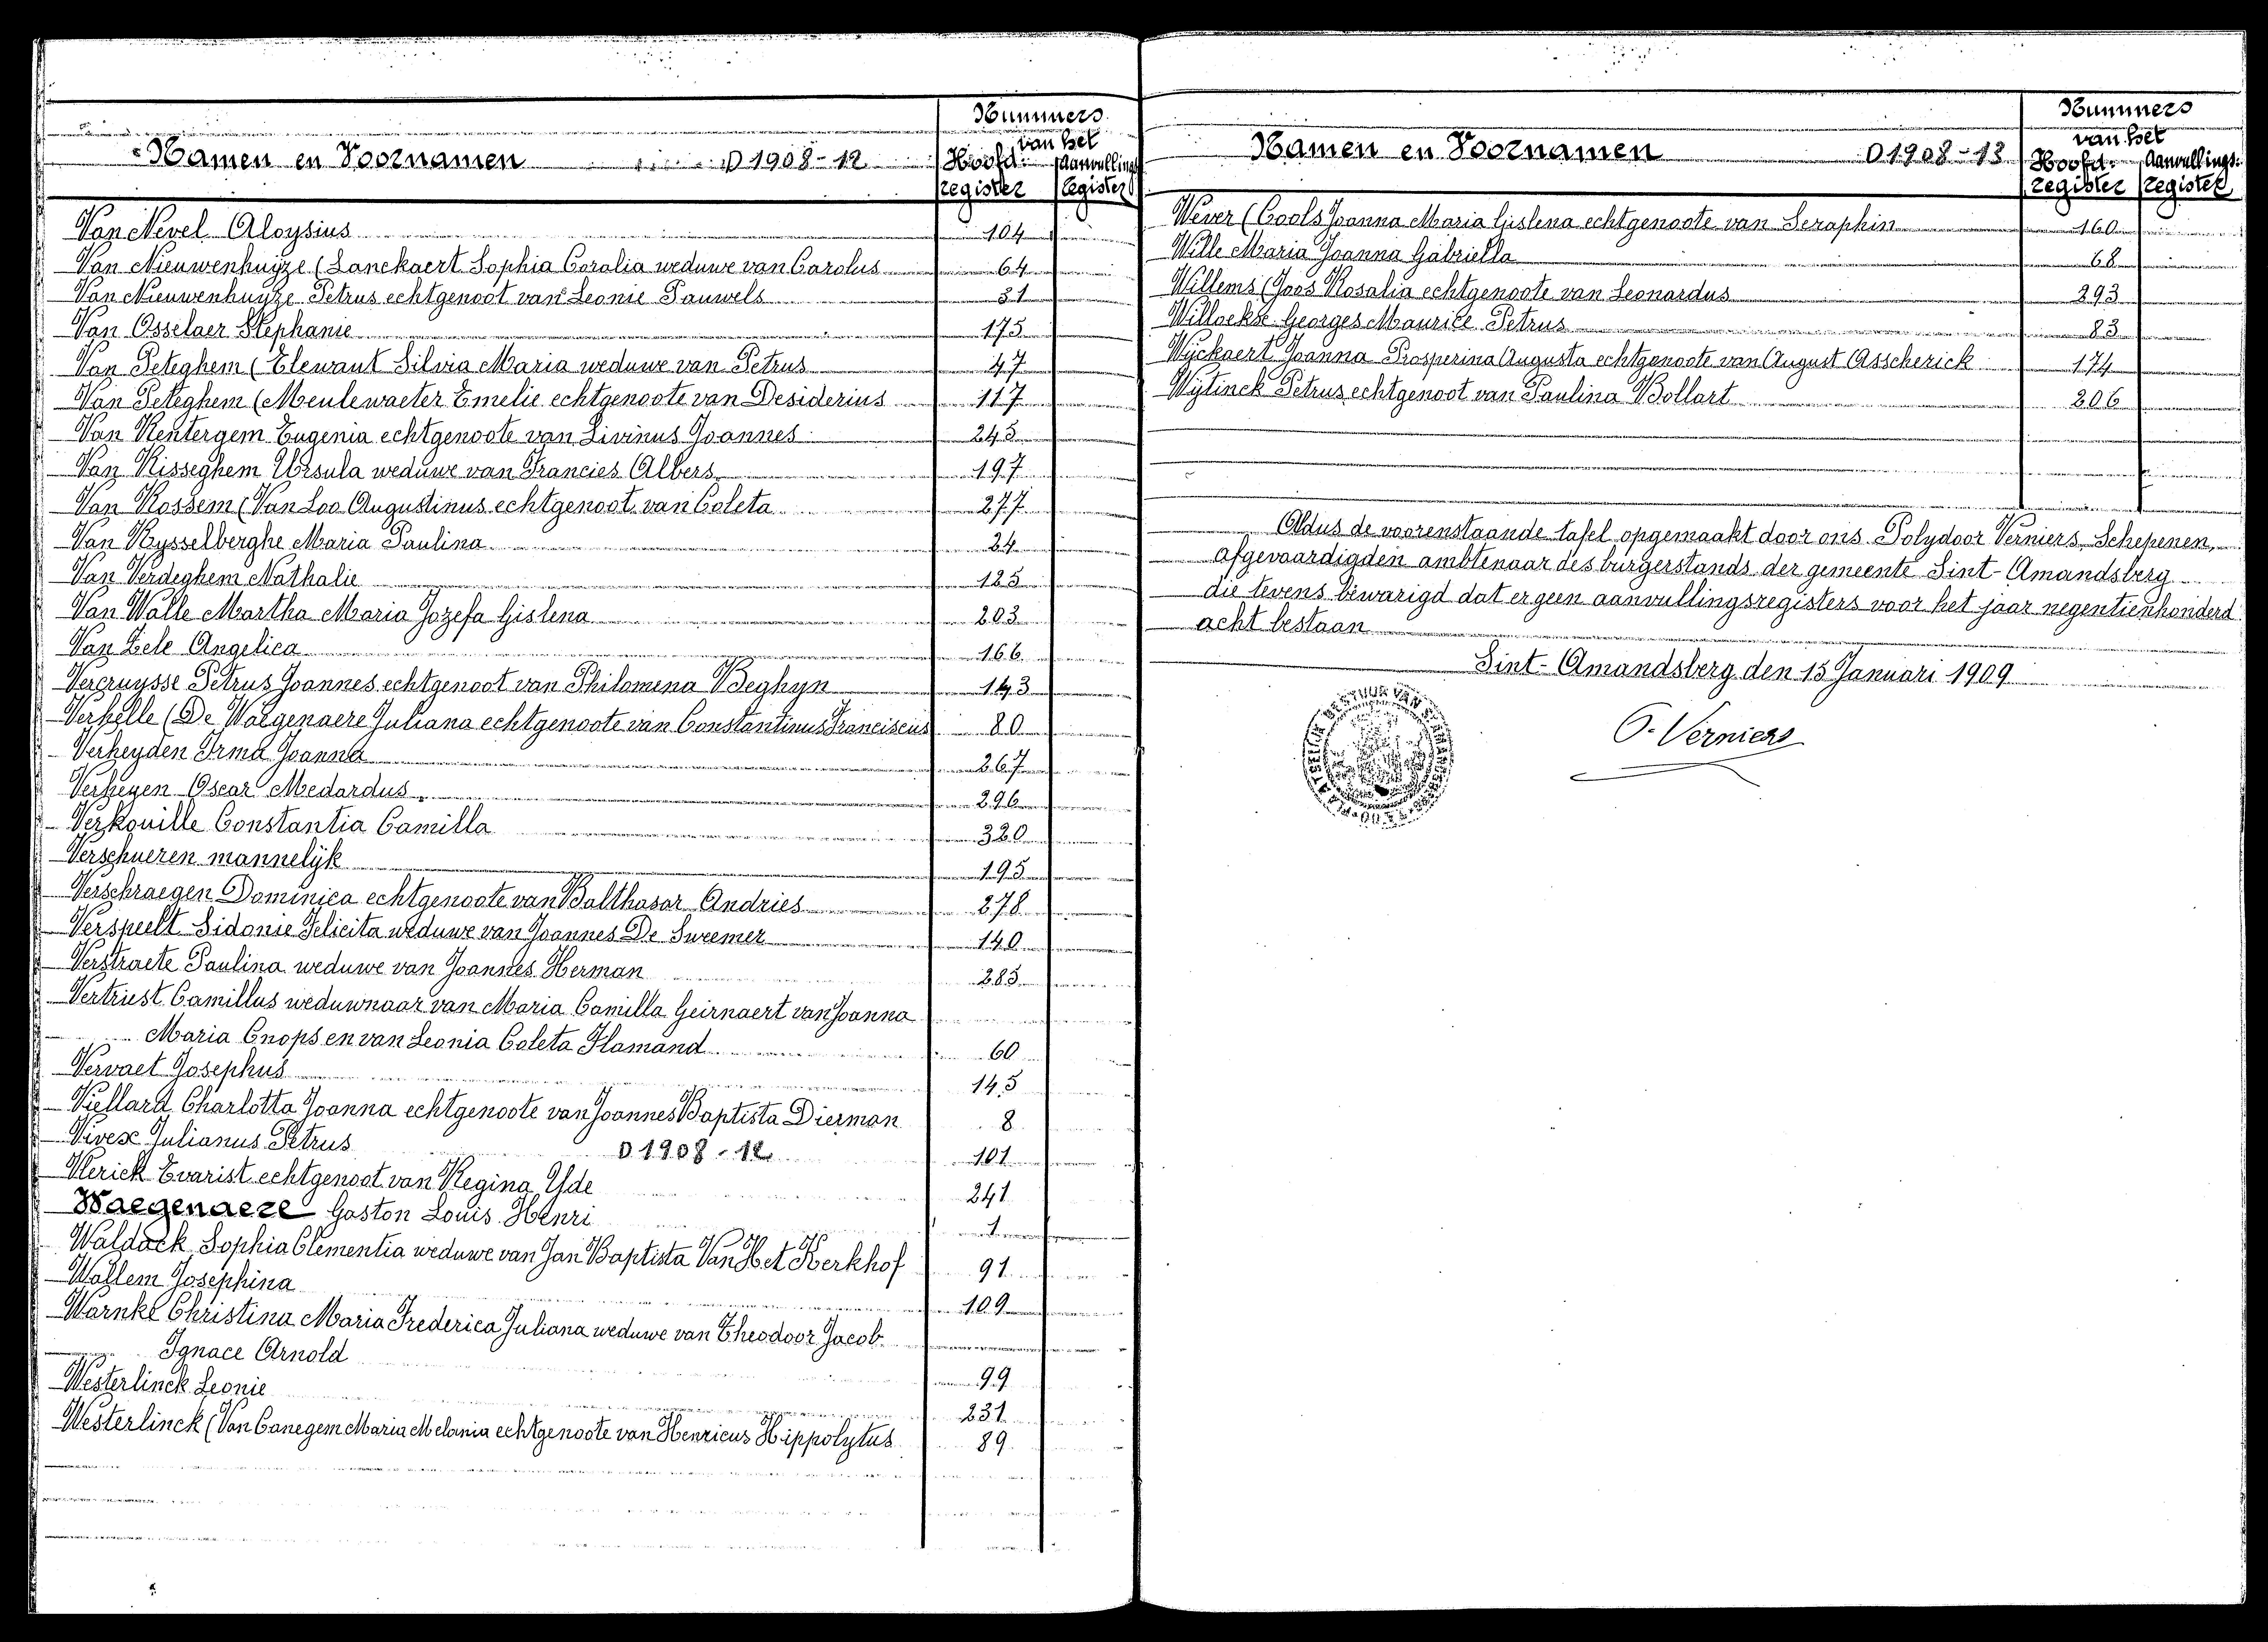 Namen en Voornamen D 1908-12
Nummers
van het
Hoofd- Aanvullings
register register
Van Nevel Aloysius 104
Van Nieuwenhuyze (Lanckaert Sophia Coralia weduwe van Carolus 64
Van Nieuwenhuyze Petrus echtgenoot van Leonie Pauwels 31
Van Osselaer Stephanie 175
Van Peteghem (Elewaut Silvia Maria weduwe van Petrus 47
Van Peteghem (Meulewaeter Emelie echtgenoote van Desiderius 117
Van Rentergem Eugenia echtgenoote van Livinus Joannes 245
Van Risseghem Ursula weduwe van Francies Albers 197
Van Rossem (Van Loo Augustinus echtgenoot van Coleta 277
Van Rysselberghe Maria Paulina 24
Van Verdeghem Nathalie 125
Van Walle Martha Maria Jozefa Gislena 203
Van Zele Angelica 166
Vercruysse Petrus Joannes echtgenoot van Philomena Beghyn 143
Verhelle (De Waegenaere Juliana echtgenoote van Constantinus Franciscus 80
Verheyden Irma Joanna 267
Verheyen Oscar Medardus 296
Verkouille Constantia Camilla 320
Verschueren mannelijk 195
Verschraegen Dominica echtgenoote van Balthasar Andries 278
Verspeelt Sidonie Felicita weduwe van Joannes De Sweemer 140
Verstraete Paulina weduwe van Joannes Herman 285
Vertriest Camillus weduwnaar van Maria Camilla Geirnaert van Joanna
Maria Cnops en van Leonia Coleta Flamand 60
Vervaet Josephus 145
Viellard Charlotta Joanna echtgenoote van Joannes Baptista Dierman 8
Vivex Julianus Petrus D 1908-12 101
Vlerick Evarist echtgenoot van Regina Yde 241
Waegenaere Gaston Louis Henri 1
Waldack Sophia Clementia weduwe van Jan Baptista Van Het Kerkhof 91
Wallem Josephina 109
Warnke Christina Maria Frederica Juliana weduwe van Theodoor Jacob
Ignace Arnold 99
Westerlinck Leonie 231
Westerlinck (Van Canegem Maria Melania echtgenoote van Henricus Hippolytus 89
Namen en Voornamen D 1908-13
Nummers
van het
Hoofd- Aanvullings-
register register
Wever (Cools Joanna Maria Gislena echtgenoote van Seraphin 160
Wille Maria Joanna Gabriella 68
Willems (Joos Rosalia echtgenoote van Leonardus 293
Willockse Georges Maurice Petrus 83
Wyckaert Joanna Prosperina Augusta echtgenoote van August Asscherick 174
Wytinck Petrus echtgenoot van Paulina Bollart 206
Aldus de voorenstaande tafel opgemaakt door ons Polydoor Verniers, Schepenen,
afgevaardigden ambtenaar des burgerstands der gemeente Sint-Amandsberg
die tevens bewarigd dat er geen aanvullingsregisters voor het jaar negentienhonderd
acht bestaan
Sint-Amandsberg den 15 Januari 1909
P. Verniers